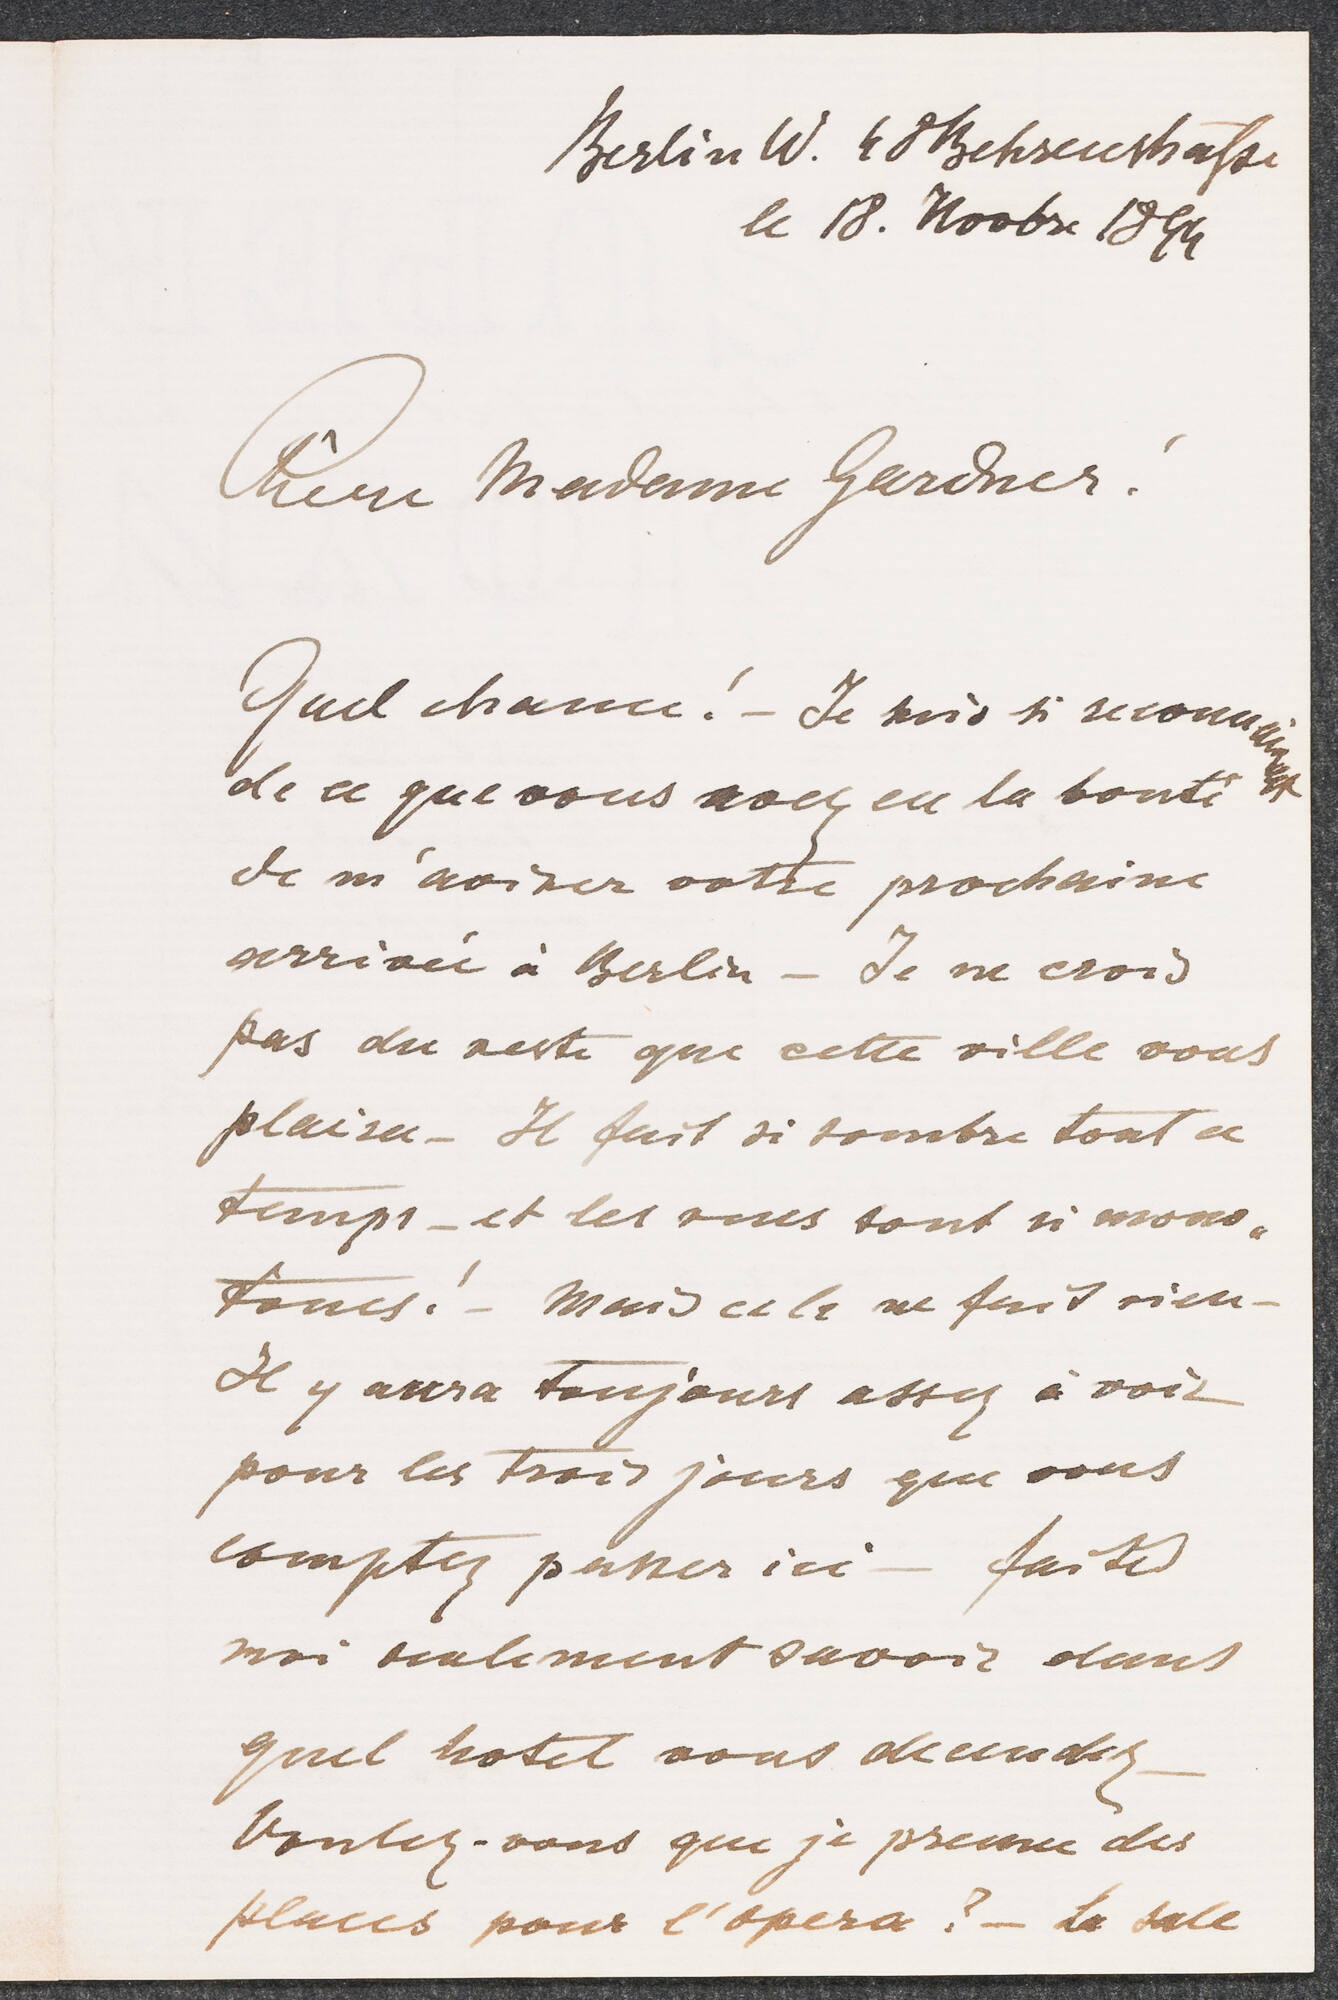 Berlin W. 48 Behrenstraße
le 18. Novbre 1894
Chère Madame Gardner!
Quel chance! – Je suis si reconnaissant
de ce que vous avez eu la bonté
de m'aviser votre prochaine
arrivée à Berlin – Je ne crois
pas du reste que cette ville vous
plaira – Il fait si sombre tout ce
temps – et les rues sont si mono-
tones! – Mais cela ne fait rien –
Il y aura toujours assez à voir
pour les trois jours que vous
comptez passer ici – faites
moi seulement savoir dans
quel hotel vous decendez –
Voulez-vous que je prenne des
places pour l'opera? – La sale